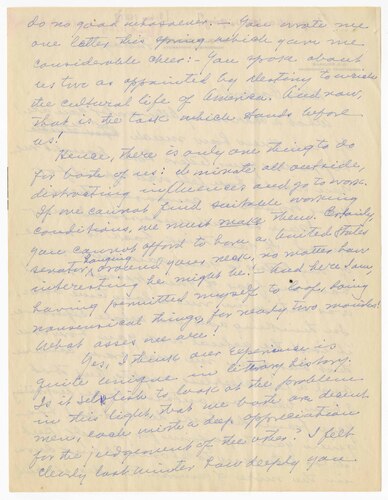 do no good whatsoever. — You wrote me
one letter this spring which gave me
considerable cheer: — You spoke about
us two as appointed by destiny to
the cultural life of America. And now,
that is the task which stands before
us!
Hence, there is only one thing to do
for both of us: eliminate all outside,
distracting influences and go to work.
If we cannot find suitable working
conditions, we must make them. Certainly,
you cannot afford to have a United States
senator hanging around your neck, no matter how
interesting he might be! And here I am,
having permitted myself to loaf, doing
nonsensical things, for nearly two months!
What asses we are!
Yes, I think our experience is
quite unique in literary history.
Is it selfish to look at the problem
in this light, that we both are decent
men, each with a deep appreciation
for the judgement of the other? I felt
clearly last winter how deeply you